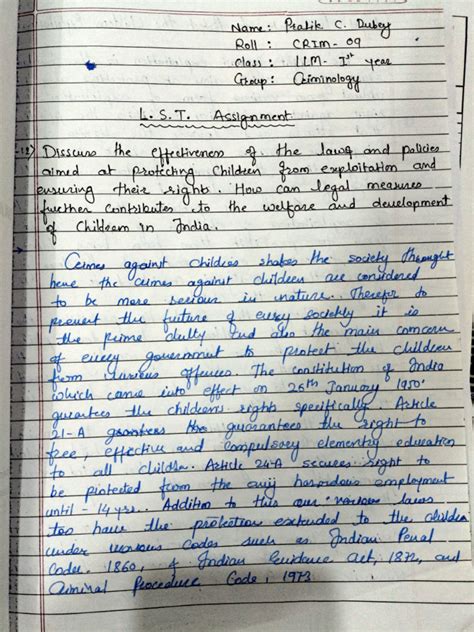 Name: Pratik C. Dubey
Roll : CRIM-09
Class : LLM- Ist year
Group: Criminology
L.S.T. Assignment
Disscuss the effectiveness of the laws and policies
aimed at protecting Children from exploitation and
ensuring their rights. How can legal measures
further contributes to the welfare and development
of Children in India.
Crimes against children shakes the society throught
here the crimes against children are considered
to be more serious in nature. Therefor to
prevent the future of every society it is
the prime duty and also the main concern
of every government to protect the children
from various offences. The constitution of India
which came into effect on 26th January 1950
guarantees the children's rights specifically. Article
21-A guarantees the right to
free, effective and compulsory elementary education
to all children. Article 24-A secures right to
be protected from the any hazardous employment
until - 14 yrs. Addition to this our various laws
too have the protection extended to the children
under various Codes such as Indian Penal
Code, 1860, & Indian Evidence Act, 1872, and
Criminal Procedure Code, 1973.